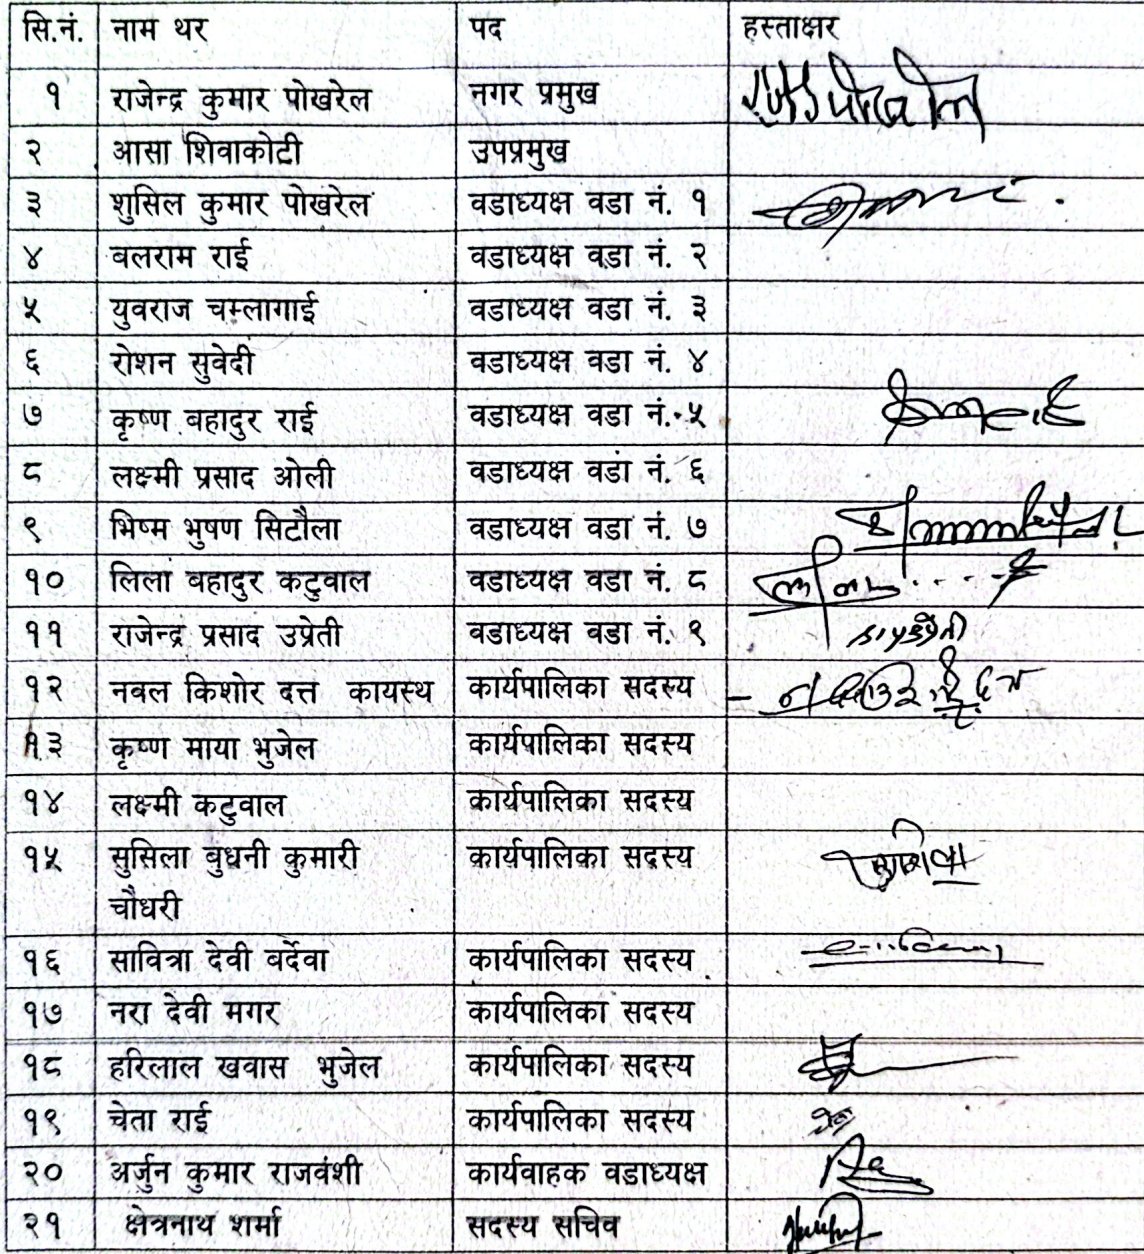 सि.नं. नाम थर पद हस्ताक्षर
१ राजेन्द्र कुमार पोखरेल नगर प्रमुख
२ आसा शिवाकोटी उपप्रमुख
३ शुसिल कुमार पोखरेल वडाध्यक्ष वडा नं. १
४ बलराम राई वडाध्यक्ष वडा नं. २
५ युवराज चम्लागाई वडाध्यक्ष वडा नं. ३
६ रोशन सुवेदी वडाध्यक्ष वडा नं. ४
७ कृष्ण बहादुर राई वडाध्यक्ष वडा नं. ५
८ लक्ष्मी प्रसाद ओली वडाध्यक्ष वडा नं. ६
९ भिष्म भुषण सिटौला वडाध्यक्ष वडा नं. ७
१० लिला बहादुर कटुवाल वडाध्यक्ष वडा नं. ८
११ राजेन्द्र प्रसाद उप्रेती वडाध्यक्ष वडा नं. ९
१२ नवल किशोर दत्त कायस्थ कार्यपालिका सदस्य
१३ कृष्ण माया भुजेल कार्यपालिका सदस्य
१४ लक्ष्मी कटुवाल कार्यपालिका सदस्य
१५ सुसिला बुधनी कुमारी कार्यपालिका सदस्य
चौधरी
१६ सावित्रा देवी बर्देवा कार्यपालिका सदस्य
१७ नरा देवी मगर कार्यपालिका सदस्य
१८ हरिलाल खवास भुजेल कार्यपालिका सदस्य
१९ चेता राई कार्यपालिका सदस्य
२० अर्जुन कुमार राजवंशी कार्यवाहक वडाध्यक्ष
२१ क्षेत्रनाथ शर्मा सदस्य सचिव